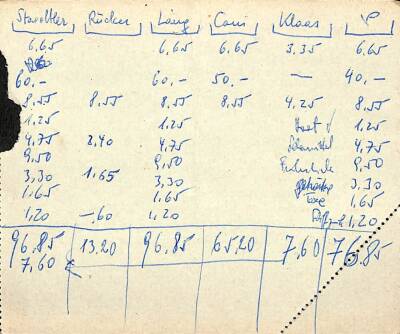 Rücker Läng Cani Klaas P
6,65 6,65 6,65 3,35 6,65
60,- 60,- 50,- — 40,-
8,55 8,55 8,55 8,55 4,25 8,55
1,25 1,25 1,25
4,75 2,40 4,75 4,75
9,50 9,50 9,50
3,30 1,65 3,30 3,30
1,65 1,65 Taxe 1,65
1,20 -,60 1,20 1,20
96.85 13.20 96.85 65.20 7,60 76.85
7,60